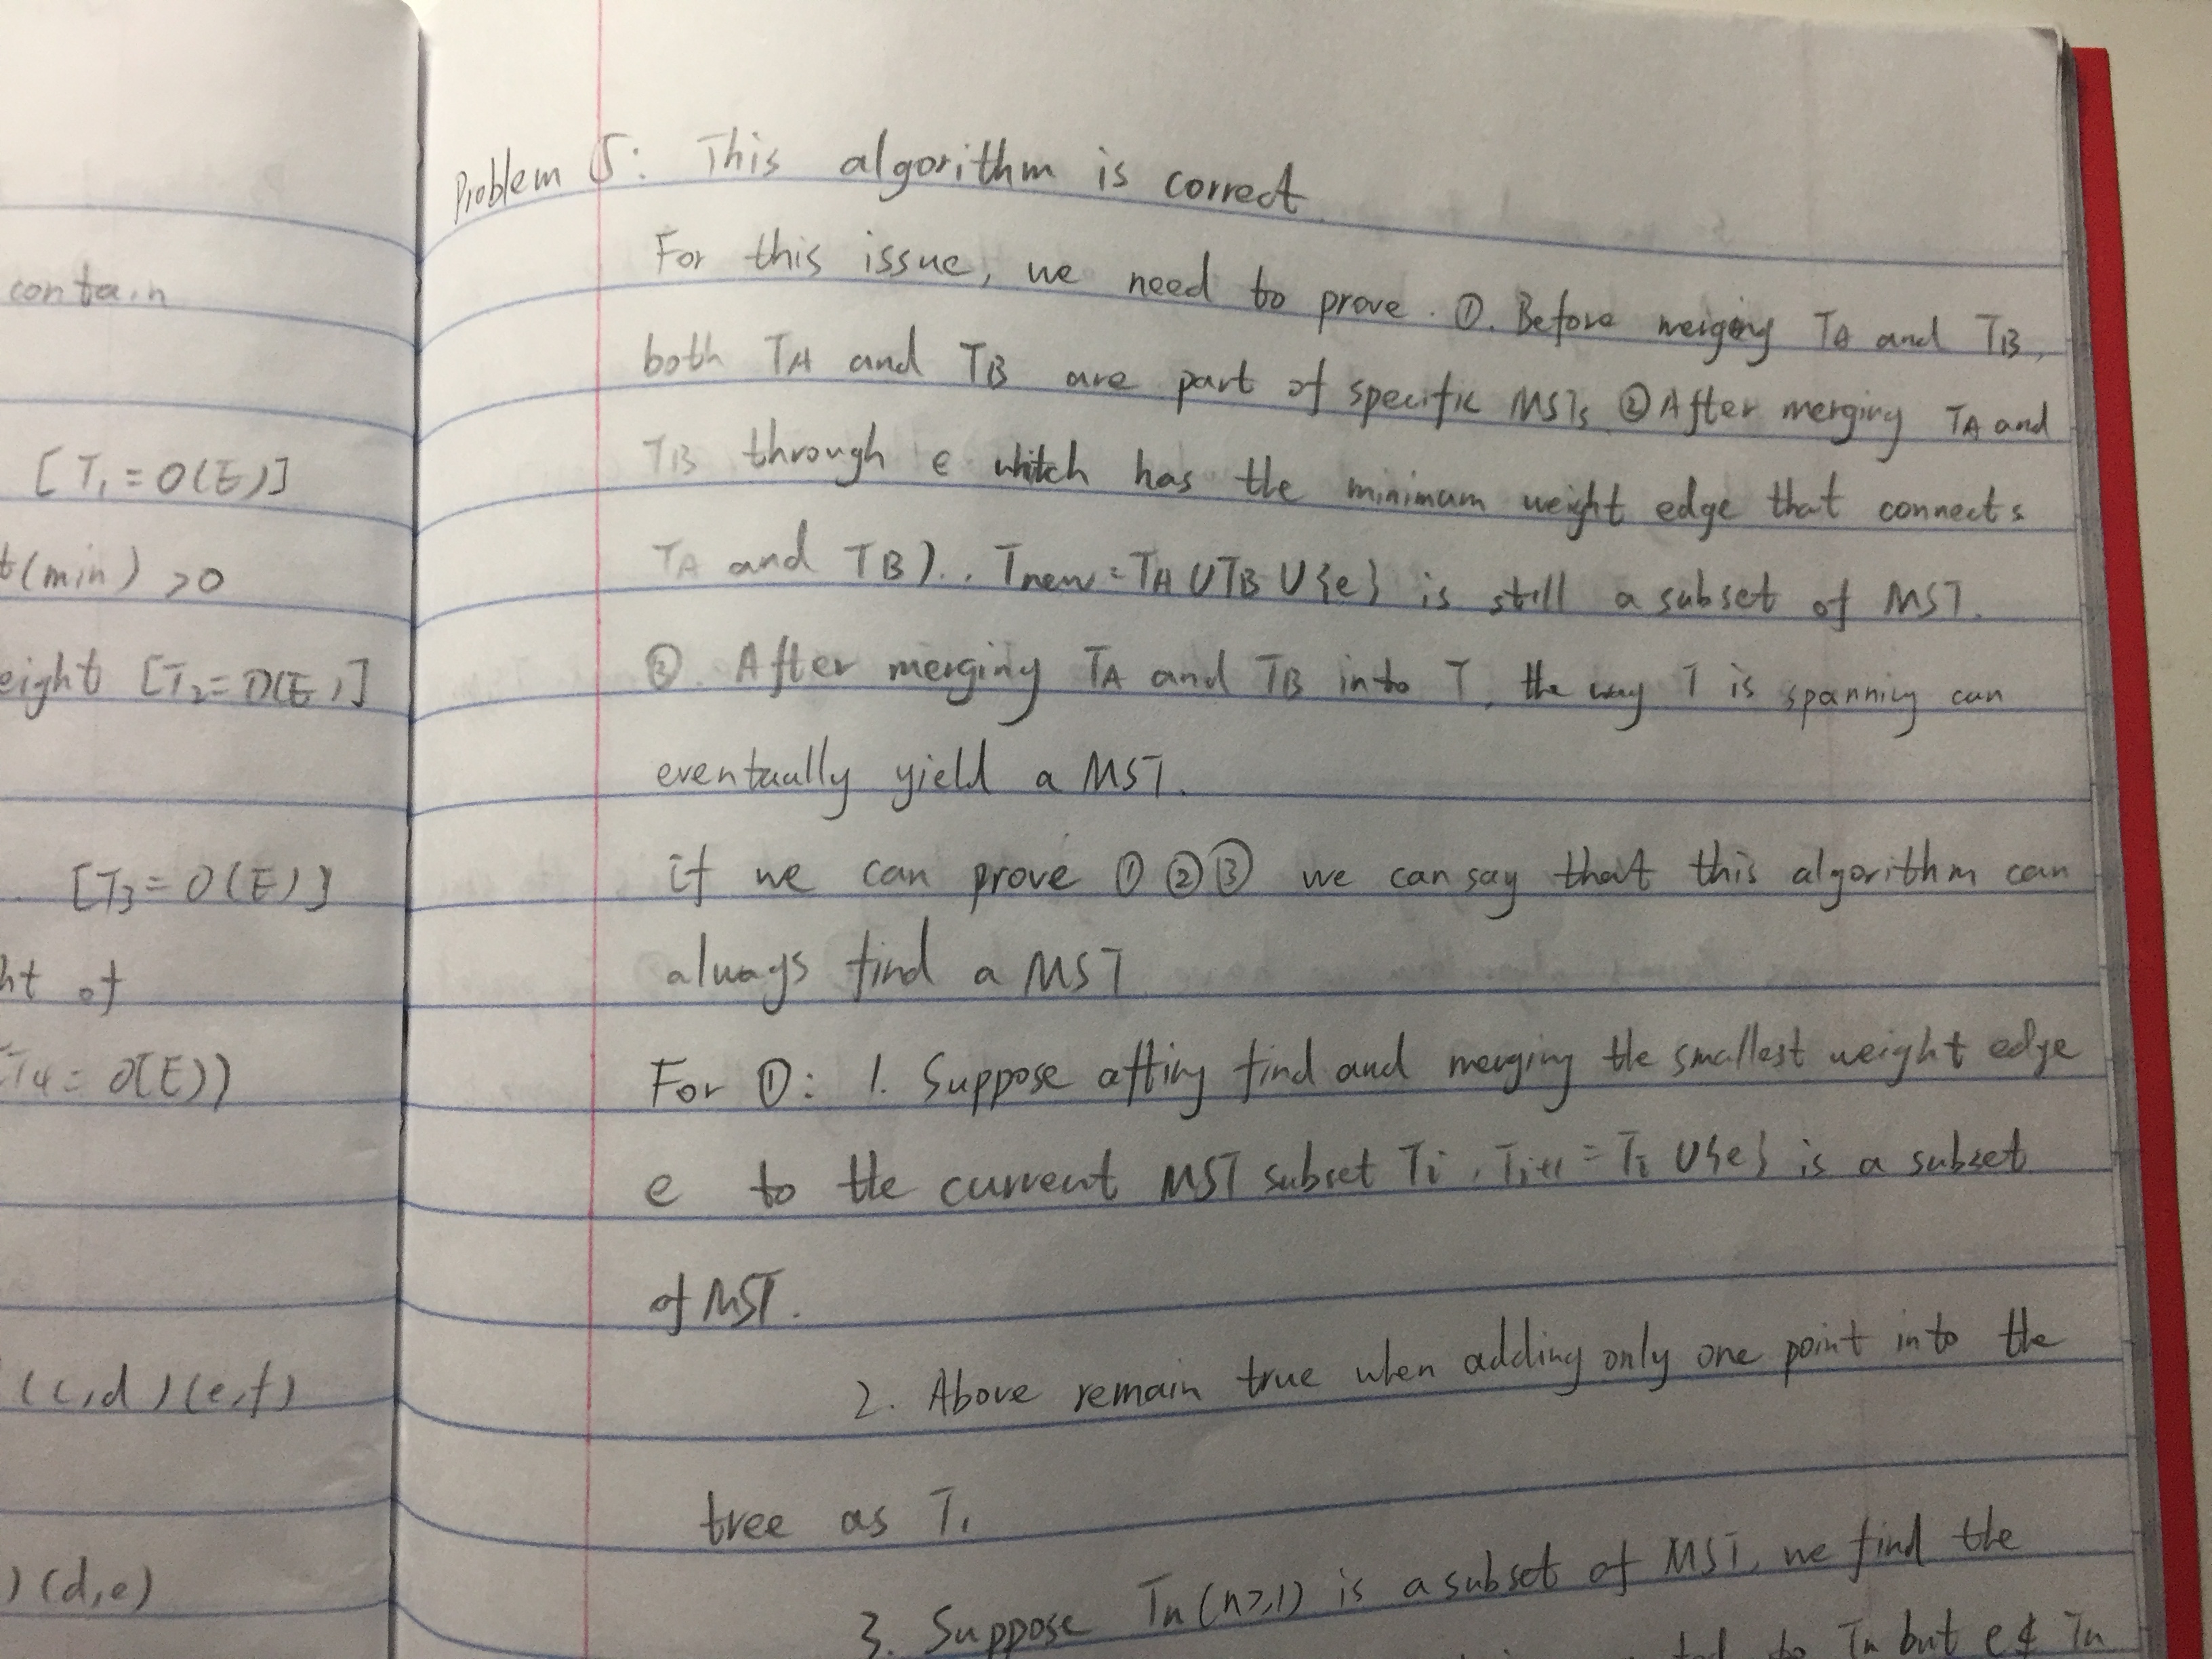 contain
[T₁ = O(E)]
t(min) >0
eight [T₂ = O(E)]
[T₃ = O(E)]
ht of
T₄ = O(E))
(c,d)(e,f)
)(d,e)
Problem 5: This algorithm is correct
For this issue, we need to prove. ①. Before merging TA and TB,
both TA and TB are part of specific MSTs ② After merging TA and
TB through e whitch has the minimum weight edge that connects
TA and TB). . Tnew = TA ∪ TB ∪ {e} is still a subset of MST.
③. After merging TA and TB into T, the way T is spanning can
eventually yield a MST.
if we can prove ① ② ③ we can say that this algorithm can
always find a MST
For ①: 1. Suppose afting find and merging the smallest weight edge
e to the current MST subset Ti, Ti+1 = Ti ∪ {e} is a subset
of MST.
2. Above remain true when adding only one point into the
tree as T₁
3. Suppose Tn (n≥1) is a subset of MST, we find the
to Tn but e ∉ Tn